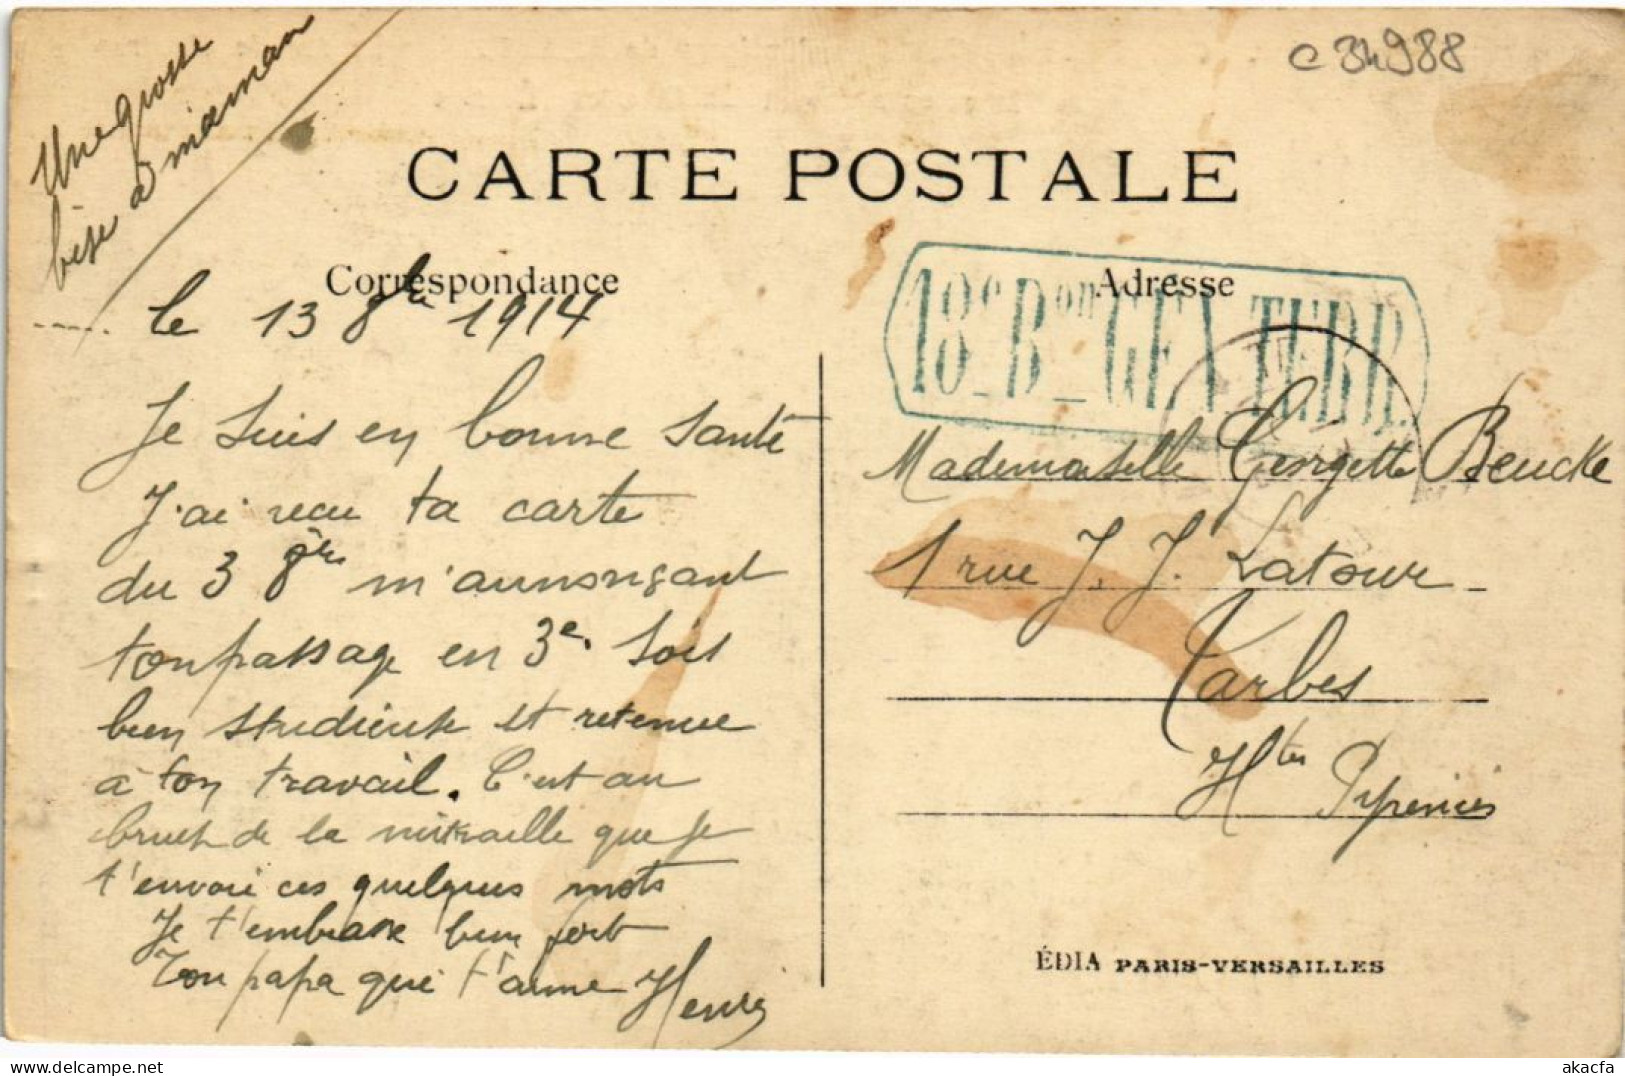 c 34988
Une grosse
bise à maman
CARTE POSTALE
Correspondance
Adresse
18e Bon GEN TERR.
le 13 8bre 1914
Je suis en bonne santé
J'ai recu ta carte
du 3 8bre m'annonçant
ton passage en 3e. Sois
bien studieuse et retenue
à ton travail. C'est au
bruit de la mitraille que je
t'envoie ces quelques mots
Je t'embrasse bien fort
Ton papa qui t'aime Henri
Mademoiselle Georgette Beucke
1 rue J. J. Latour
Tarbes
Htes Pyrenées
ÉDIA PARIS-VERSAILLES
akacfa